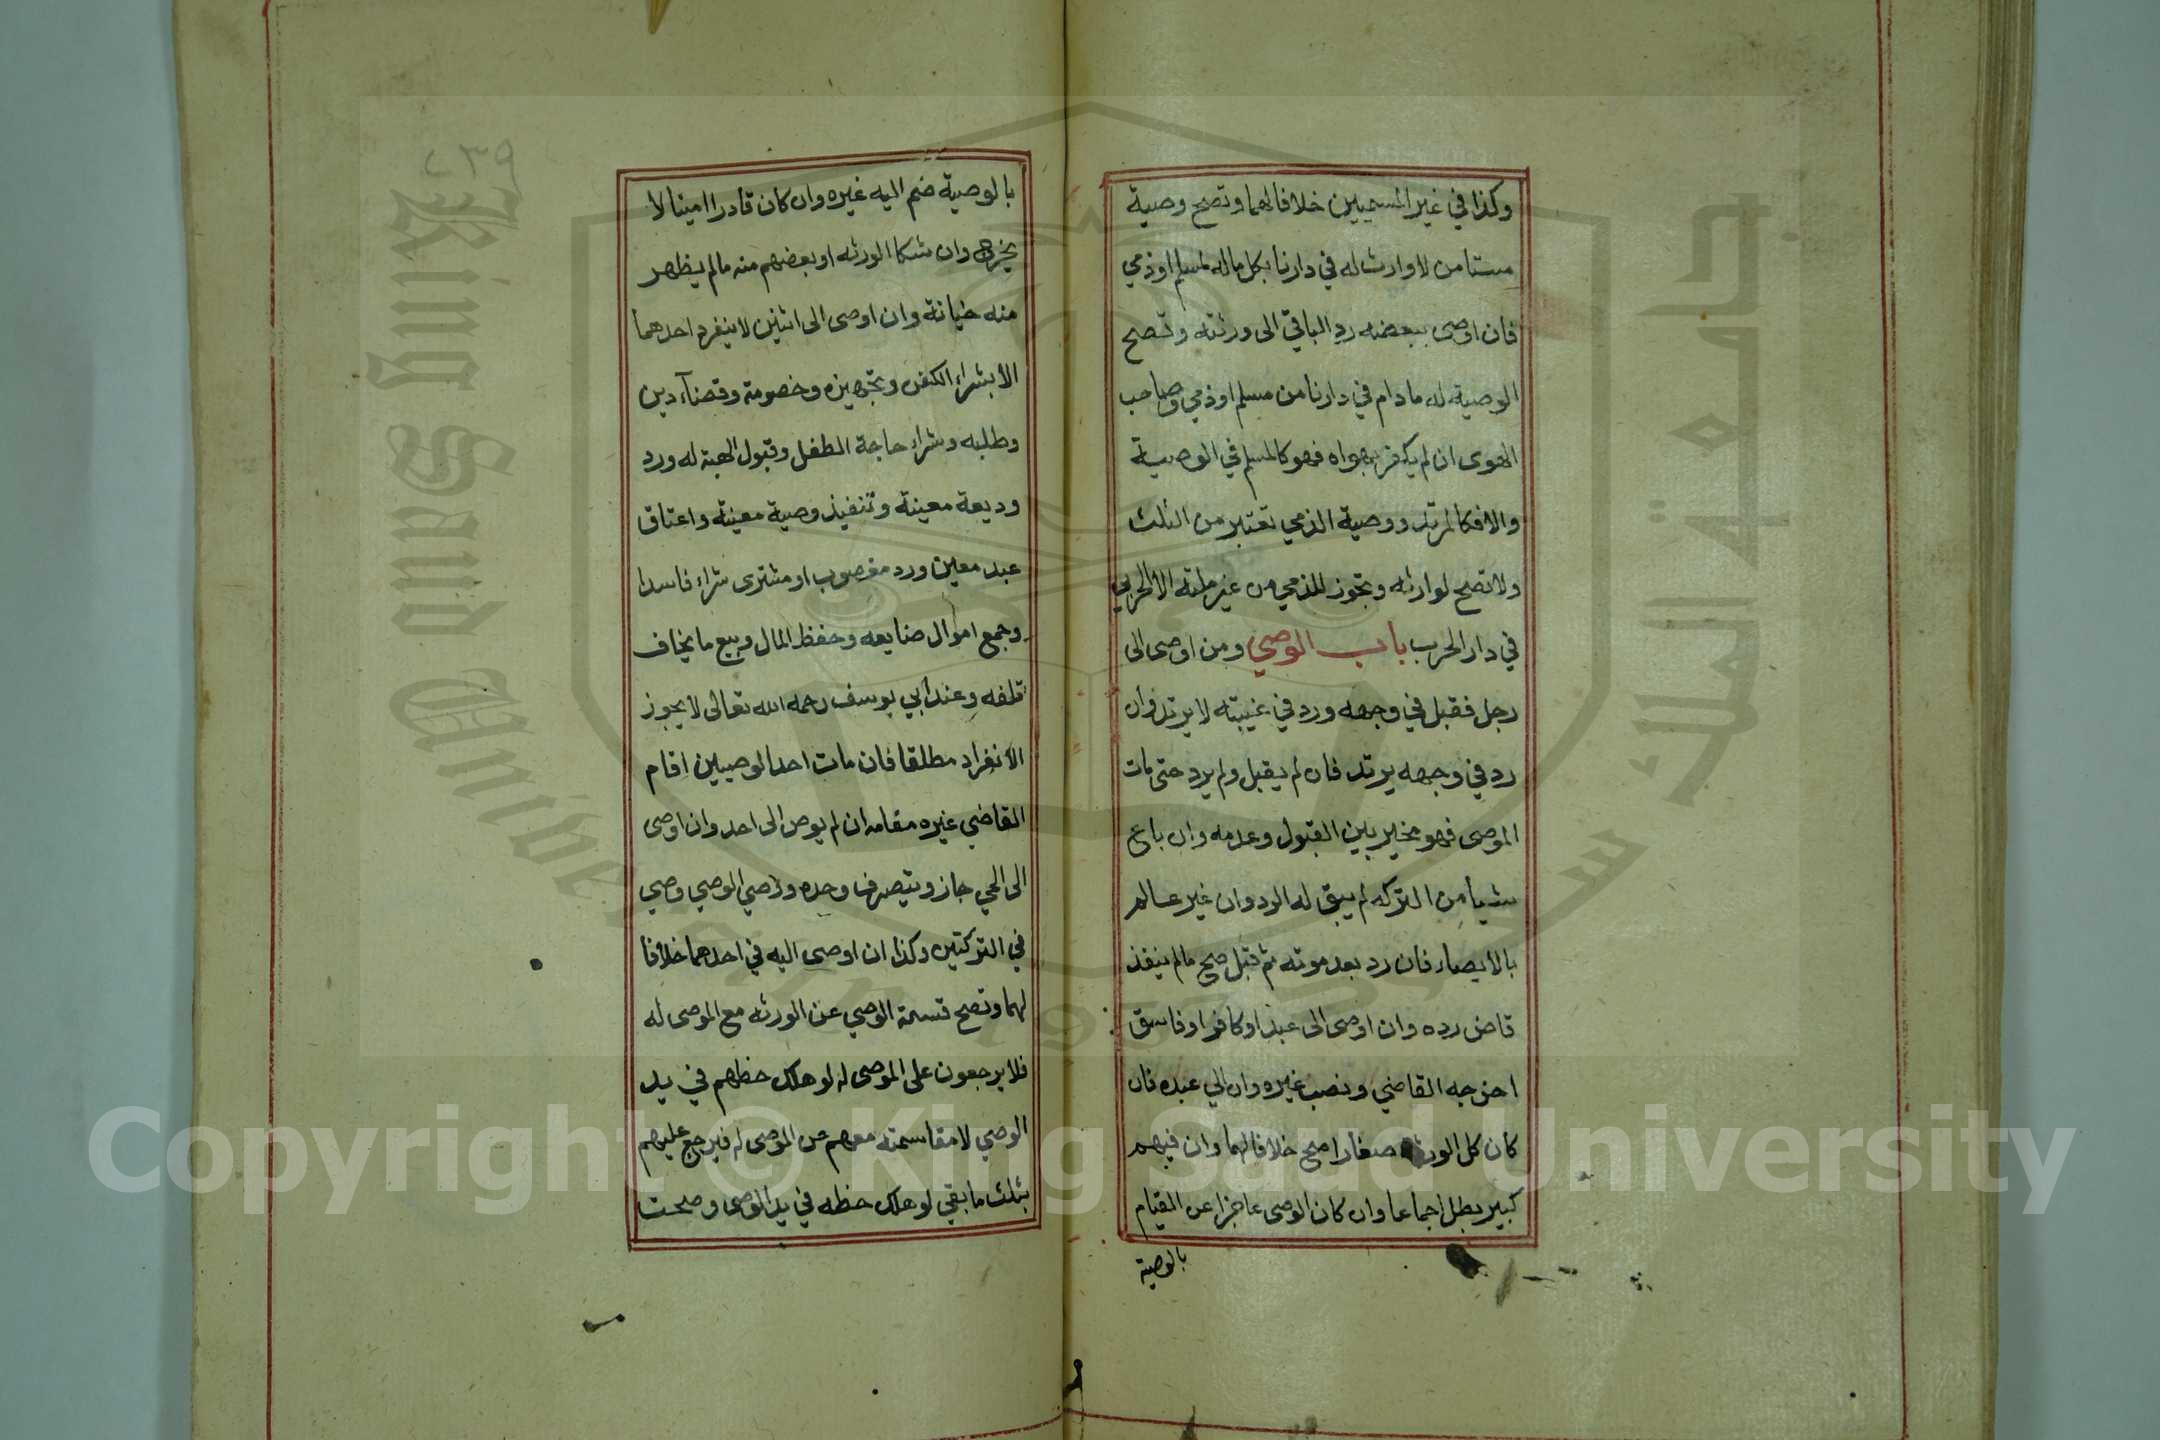 وكذا في غير المسميين خلافا لهما وتصح وصية
مستامن لا وارث له في دارنا بكل ماله لمسلم او ذمي
فان اوصى ببعضه رد الباقي الى ورثته وتصح
الوصية له ما دام في دارنا من مسلم او ذمي وصاحب
الهوى ان لم يكفر بهواه فهو كالمسلم في الوصية
والا فكالمرتد ووصية الذمي تعتبر من الثلث
ولا تصح لوارثه وتجوز للذمي من غير ملته الا لحربي
في دار الحرب باب الوصي ومن اوصى الى
رجل فقبل في وجهه ورد في غيبته لا يرتد وان
رد في وجهه يرتد فان لم يقبل ولم يرد حتى مات
الموصى فهو مخير بين القبول وعدمه وان باع
شيأ من التركه لم يبق له الرد وان غير عالم
بالايصاء فان رد بعد موته ثم قبل صح مالم ينفذ
قاض رده وان اوصى الى عبد او كافر او فاسق
اخرجه القاضي ونصب غيره وان الي عبده فان
كان كل الورثه صغارا صح خلافا لهما وان فيهم
كبير بطل اجماعا وان كان الوصى عاجزا عن القيام
بالوصية
٢٣٩
بالوصية ضم اليه غيره وان كان قادرا امينا لا
يخرج وان شكا الورثه او بعضهم منه مالم يظهر
منه خيانة وان اوصى الى اثنين لا ينفرد احدهما
الا بشراء الكفن وتجهيزه وخصومة وقضآء دين
وطلبه وشراء حاجة الطفل وقبول الهبة له ورد
وديعة معينة وتنفيذ وصية معينة واعتاق
عبد معين ورد مغصوب او مشترى شراء فاسدا
وجمع اموال ضايعه وحفظ المال وبيع ما يخاف
تلفه وعند ابي يوسف رحمه الله تعالى لا يجوز
الانفراد مطلقا فان مات احد الوصيين اقام
القاضي غيره مقامه ان لم يوص الى احد وان اوصى
الى الحي جاز ويتصرف وحده ووصي الوصي وصي
في التركتين وكذا ان اوصى اليه في احدهما خلافا
لهما وتصح قسمة الوصي عن الورثه مع الموصى له
فلا يرجعون على الموصى له لو هلك حظهم في يد
الوصي لا مقاسمته معهم عن الموصى له فيرجع عليهم
بثلث ما بقي لو هلك حظه في يد الوصى وصحت
جامعة الملك سعود
King Saud University
1957
Copyright © King Saud University